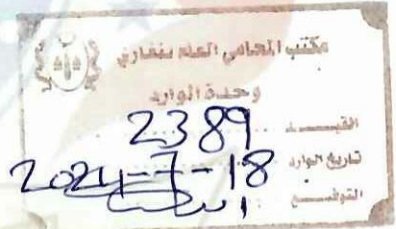 مكتب المحامي العام بنغازي
وحدة الوارد
القيد 2389
تاريخ الوارد 18-7-2024
التوقيع